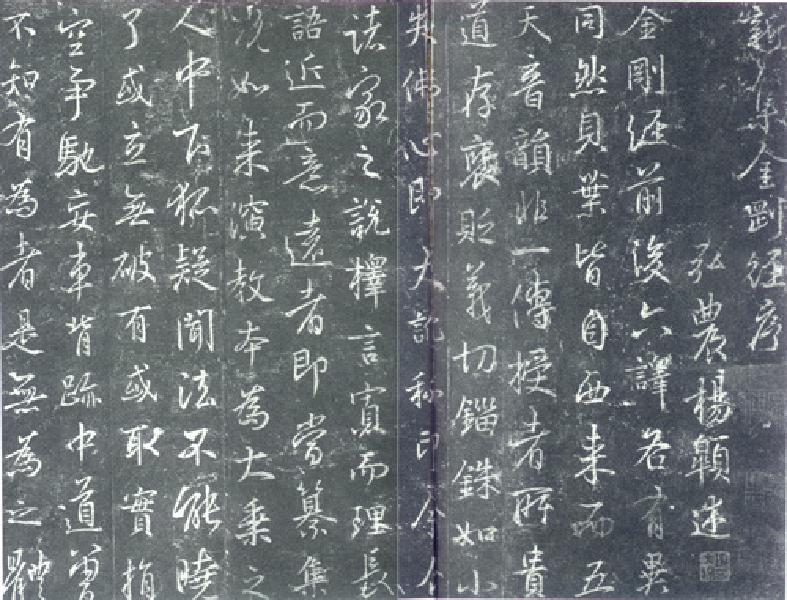 新集金剛經序
弘農楊述
金剛經前後六譯各有異
同然貝葉皆自西来而五
天音韻非一傳授者所貴
道存褒貶義切錙銖如小
失佛心即大訛秘印今合
諸家之說擇言寡而理長
語近而意遠者即當纂集
況如来演教本為大乘之
人中下狐疑聞法不能曉
了或立無破有或取實捐
空爭馳妄車背跡中道曾
不知有為者是無為之體